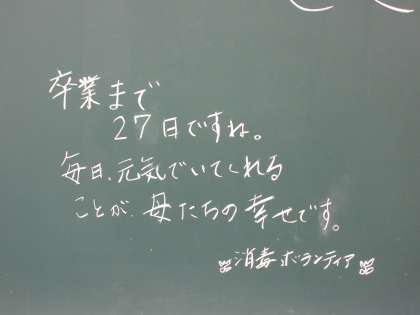 卒業まで
27日ですね。
毎日、元気でいてくれる
ことが、母たちの幸せです。
消毒ボランティア